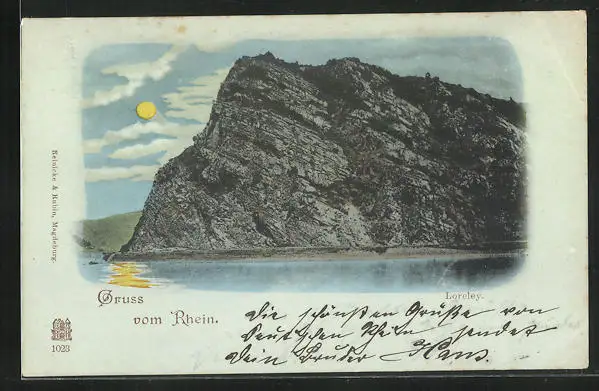 Reinicke & Rubin, Magdeburg.
1023
Gruss
vom Rhein.
Loreley.
Die schönsten Grüße von
deutschen Rhein sendet
Dein Bruder Hans.